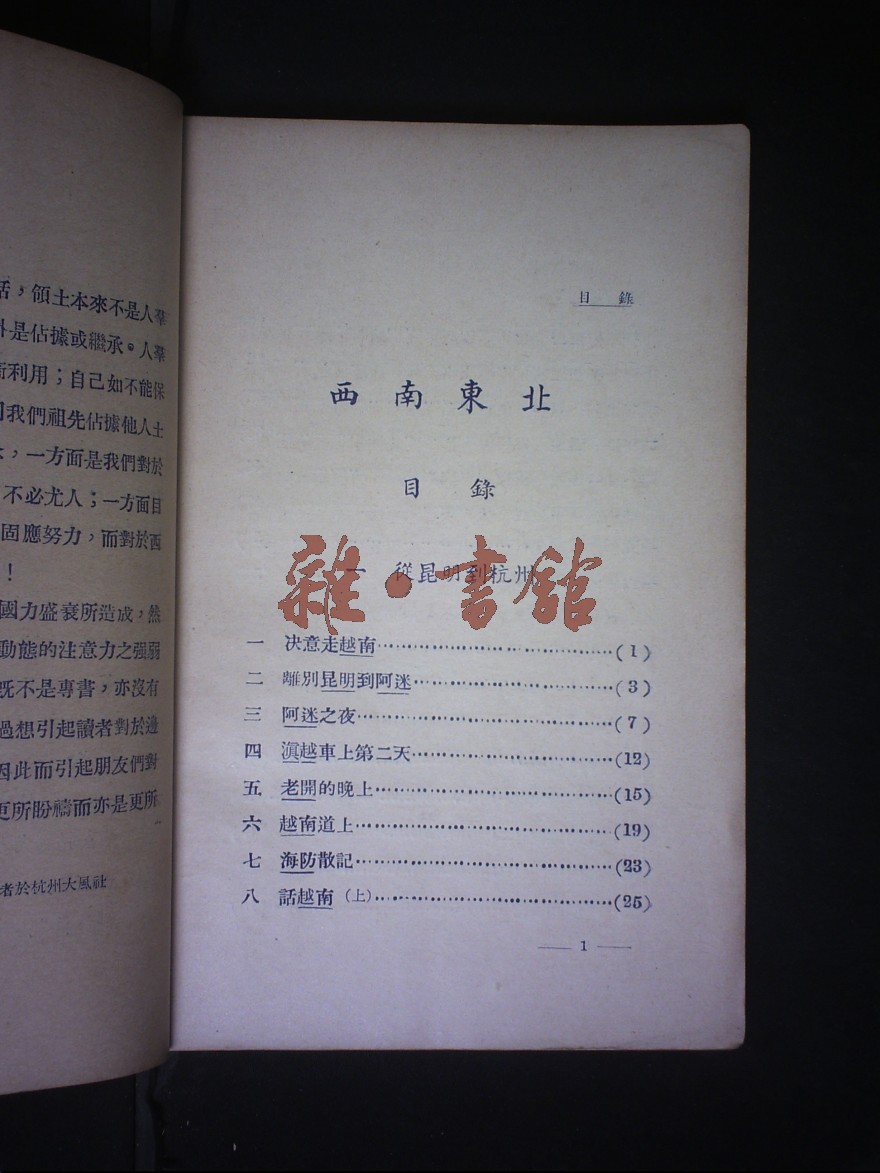 話，領土本來不是人羣
外是佔據或繼承。人羣
衛利用；自己如不能保
我們祖先佔據他人土
，一方面是我們對於
不必尤人；一方面目
固應努力，而對於西
！
國力盛衰所造成，然
動態的注意力之强弱
旣不是專書，亦沒有
過想引起讀者對於邊
因此而引起朋友們對
更所盼禱而亦是更所
者於杭州大風社
目錄
西南東北
目錄
一 從昆明到杭州
雜·書館
一 决意走越南……(1)
二 離別昆明到阿迷……(3)
三 阿迷之夜……(7)
四 滇越車上第二天……(12)
五 老開的晚上……(15)
六 越南道上……(19)
七 海防散記……(23)
八 話越南（上）……(25)
— 1 —